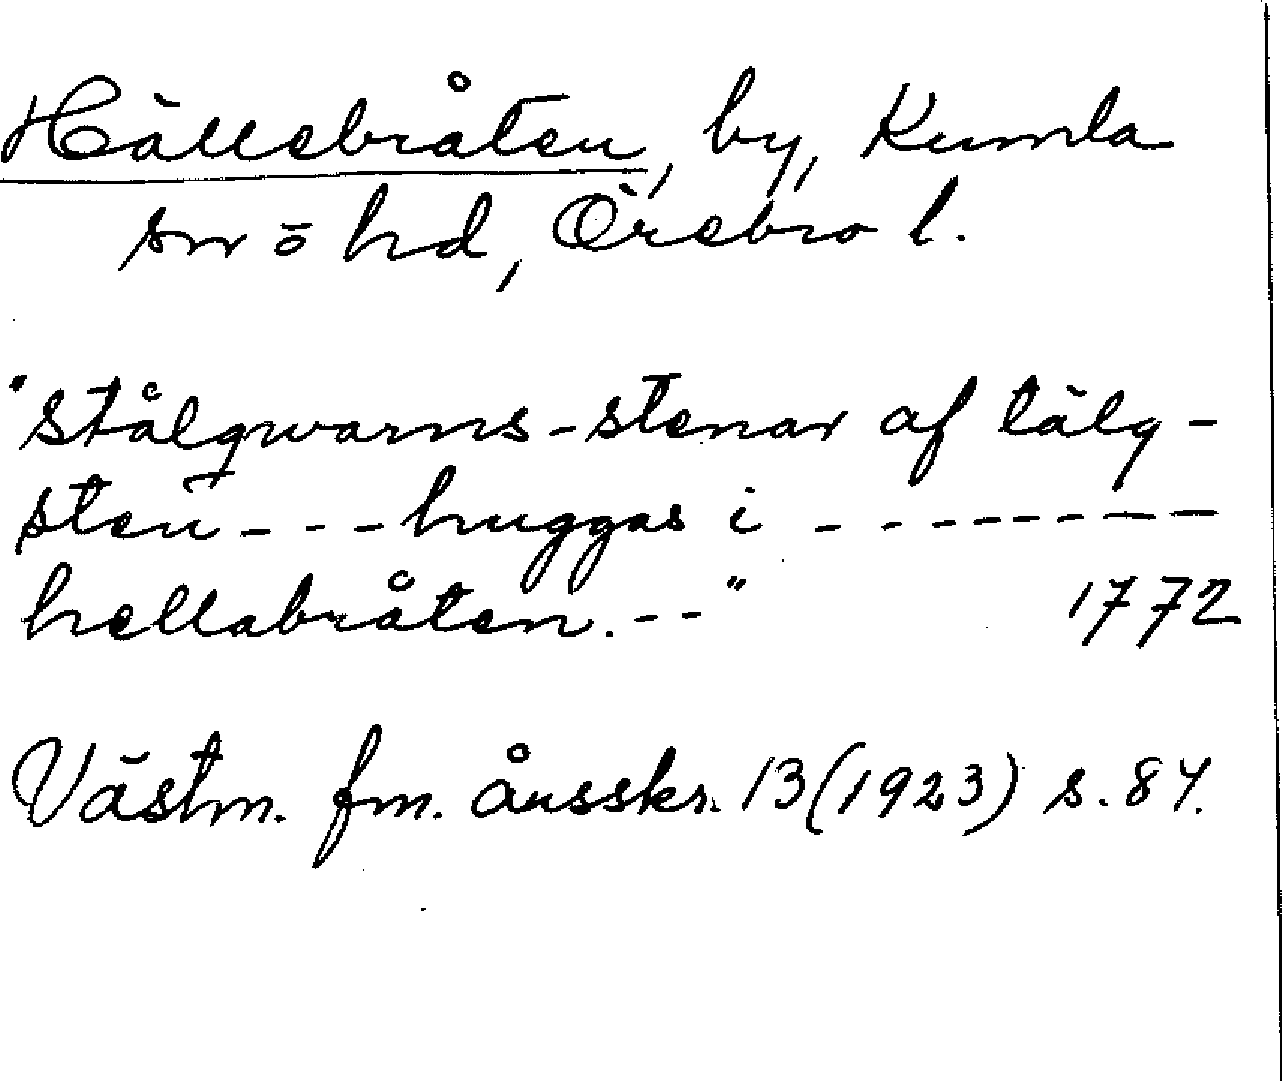 Hällebråten, by, Kumla
sn ō hd, Örebro l.
"stålqwarns-stenar af tälg-
sten - - - huggas i - - - - - - - - -
hellabråten. - - " 1772
Västm. fm. årsskr. 13 (1923) s. 84.